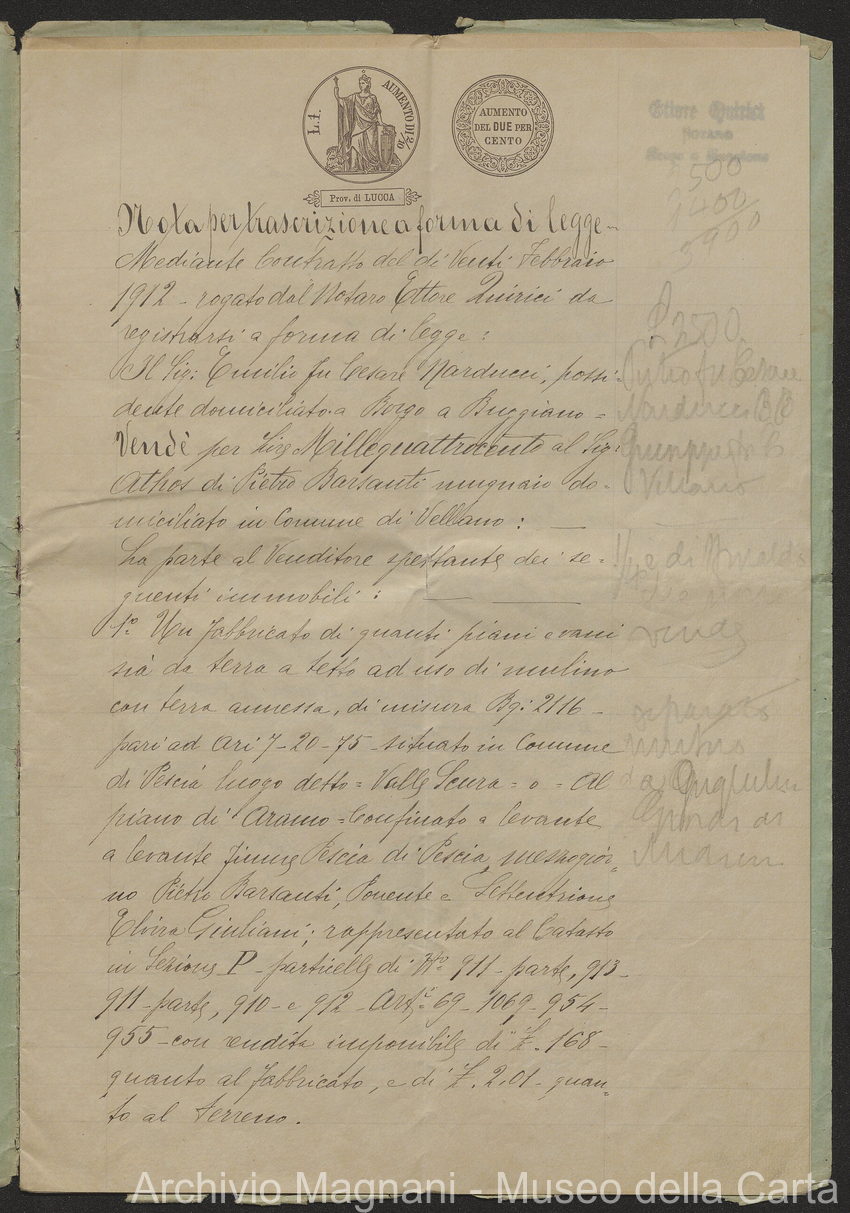 L. 1.
AUMENTO DI 2/10
AUMENTO
DEL DUE PER
CENTO
Prov. di LUCCA
Ettore Quirici
NOTARO
500
1400
3900
Nota per trascrizione a forma di legge
Mediante Contratto del dì Venti Febbraio
1912 - rogato dal Notaro Ettore Quirici da
registrarsi a forma di legge:
Il Sig: Emilio fu Cesare Narducci, possi-
dente domiciliato a Borgo a Buggiano =
Vendè per Lire Millequattrocento al Sig:
Athos di Pietro Barsanti mugnaio do-
miciliato in Comune di Vellano:
La parte al Venditore spettante dei se=
guenti immobili:
1º Un fabbricato di quanti piani e vani
sia da terra a tetto ad uso di mulino
con terra annessa, di misura Bq: 2116 -
pari ad ari 7-20-75 - situato in Comune
di Pescia luogo detto = Valle Scura = o = Al
piano di Aramo = Confinato a levante
a levante fiume Pescia di Pescia, mezzogior-
no Pietro Barsanti, Ponente e Settentrione
Elvira Giuliani; rappresentato al Catasto
in Sezione P - particelle di Nº 911 - parte, 913 -
911 - parte, 910 - e 912 - Artº 69 - 1069 - 954 -
955 - con rendita imponibile di £. 168 -
quanto al fabbricato, e di £. 2.01 - quan-
to al terreno.
£ 2500
fu Cesare
Narducci BB
Giuseppe
Vellano
vende
separato
da
Archivio Magnani - Museo della Carta